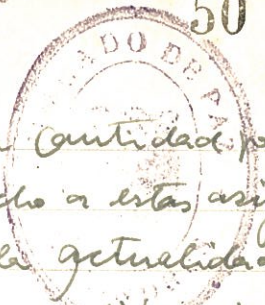 50
ADO DE PA
cantidad p
cho a estas asig
la actualidad